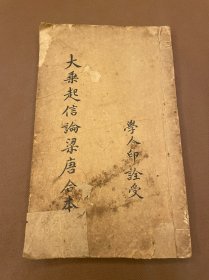 大乘起信論梁唐合本
學人印詮受